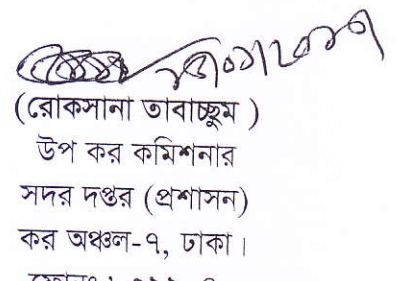 (রোকসানা তাবাচ্ছুম )
উপ কর কমিশনার
সদর দপ্তর (প্রশাসন)
কর অঞ্চল-৭, ঢাকা।